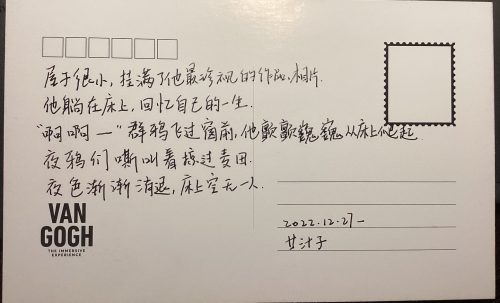 屋子很小，挂满了他最珍视的作品、相片.
他躺在床上，回忆自己的一生.
"啊啊—"群鸦飞过窗前，他颤颤巍巍从床上爬起
夜鸦们嘶叫着掠过麦田.
夜色渐渐消退，床上空无一人.
VAN
GOGH
THE IMMERSIVE
EXPERIENCE
2022.12.27
甘汁子